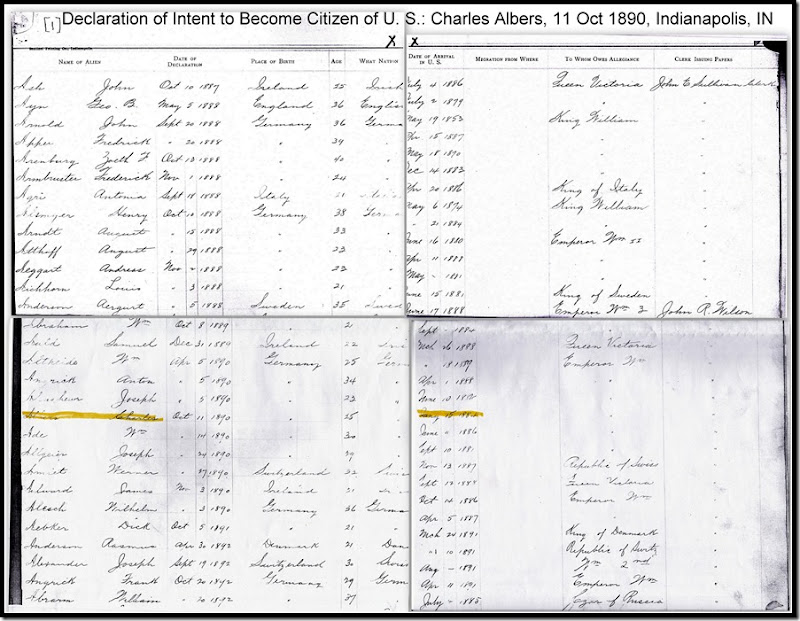 Declaration of Intent to Become Citizen of U. S.: Charles Albers, 11 Oct 1890, Indianapolis, IN
[1]
X X
NAME OF ALIEN DATE OF DECLARATION PLACE OF BIRTH AGE WHAT NATION DATE OF ARRIVAL IN U. S. MIGRATION FROM WHERE TO WHOM OWES ALLEGIANCE CLERK ISSUING PAPERS
Ash John Oct 10 1887 Ireland 25 Irish July 4 1886 Queen Victoria John E Sullivan Clerk
Geo. B. May 5 1888 England 36 Englis July 2 1879 "
Arnold John Sept 20 1888 Germany 36 Germa May 19 1853 King William "
Apper Fredrick " 20 1888 " 39 15 1887 " "
Arenburg Zoeth F Oct 13 1888 " 40 May 18 1890 " "
Armbruster Frederick Nov 1 1888 " 24 Dec 14 1883 " "
Antonia Sept 18 1888 Italy 21 Apr 20 1886 King of Italy "
Henry Oct 10 1888 Germany 38 Germa May 6 1874 King William "
Arndt August " 13 1888 " 33 " 21 1884 " "
Atthoff August " 29 1888 " 23 June 16 1880 Emperor Wm II "
Aeggart Andreas Nov 2 1888 " 22 Apr 11 1888 " "
Eichhorn Louis " 3 1888 " 21 May " 1881 " "
Anderson " 5 1888 Sweden 35 Swed June 15 1881 King of Sweden "
June 17 1888 Emperor Wm 2 John R. Wilson
Abraham Wm Oct 8 1889 " 21 Sept 1884
Auld Samuel Dec 31 1889 Ireland 22 Mch 26 1888 Queen Victoria "
Altheide Wm Apr 5 1890 Germany 25 Germ " 18 1889 Emperor Wm "
Angrick Anton " 5 1890 " 34 Apr 1 1888 " "
Joseph " 5 1890 " 23 June 10 " "
Albers Charles Oct 11 1890 " 25 Aug 15 " "
Ade Wm " 14 1890 " 30 June 1886 " "
Joseph " 24 1890 " 29 Sept 10 1881 " "
Amiet Werner " 27 1890 Switzerland 32 Swiss Nov 13 1887 Republic of Swiss "
Alward James Nov 3 1890 Ireland Sept Queen Victoria "
Wilhelm " 3 1890 Germany 36 Germa Oct 14 1886 Emperor Wm "
Aebker Dick Oct 5 1891 " 21 Apr 5 1887 " "
Anderson Rasmus Apr 30 1892 Denmark 21 Dan Mch 24 1891 King of Denmark "
Alexander Joseph Sept 19 1892 Switzerland 30 Swiss " 10 1891 Republic of Swit "
Angrick Frank Oct 20 1892 Germany 29 Germ Aug - 1891 Wm 2nd "
Abram William " 20 1892 " 37 Apr 11 1891 Emperor Wm "
July - 1885 Czar of Russia "